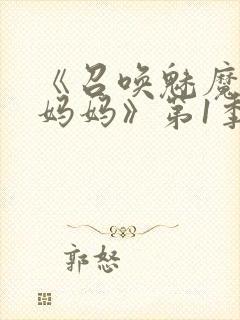 《召唤魅魔
妈妈》第1季
郭怒